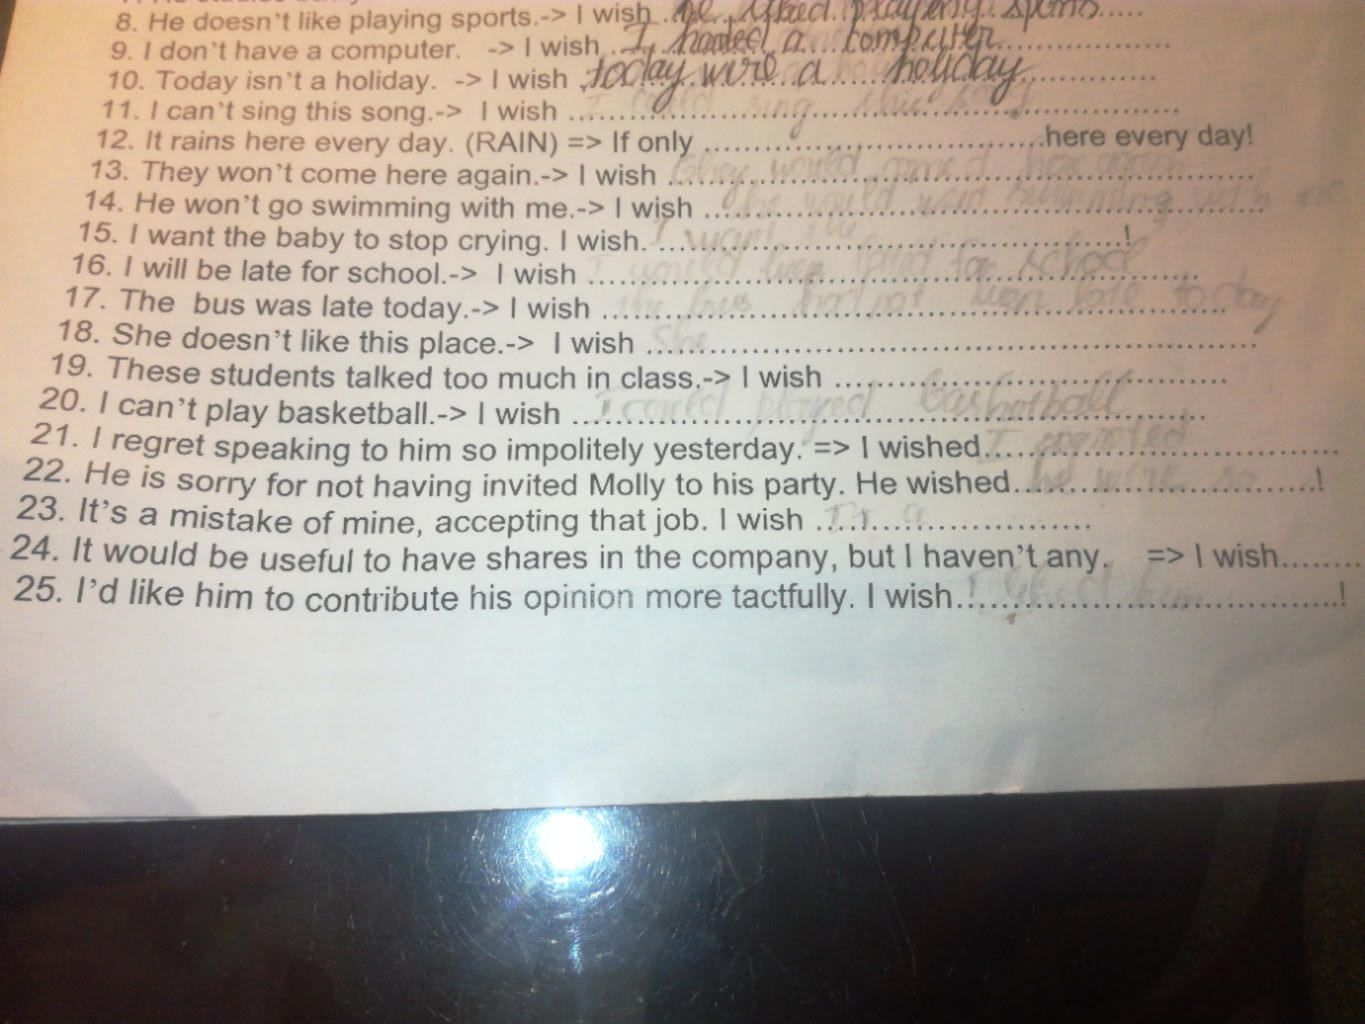 8. He doesn't like playing sports.-> I wish he liked playing sports
9. I don't have a computer. -> I wish I haded a computer
10. Today isn't a holiday. -> I wish today were a holiday
11. I can't sing this song.-> I wish I could sing this song
12. It rains here every day. (RAIN) => If only ..................................here every day!
13. They won't come here again.-> I wish they would comed here again
14. He won't go swimming with me.-> I wish he would went swimming with me
15. I want the baby to stop crying. I wish. I want the ..................................!
16. I will be late for school.-> I wish I would late for school
17. The bus was late today.-> I wish the bus had not late today
18. She doesn't like this place.-> I wish She
19. These students talked too much in class.-> I wish ..................................
20. I can't play basketball.-> I wish I could played basketball
21. I regret speaking to him so impolitely yesterday. => I wished I
22. He is sorry for not having invited Molly to his party. He wished he were so ..................!
23. It's a mistake of mine, accepting that job. I wish ..................................
24. It would be useful to have shares in the company, but I haven't any. => I wish........
25. I'd like him to contribute his opinion more tactfully. I wish I liked him ..................!